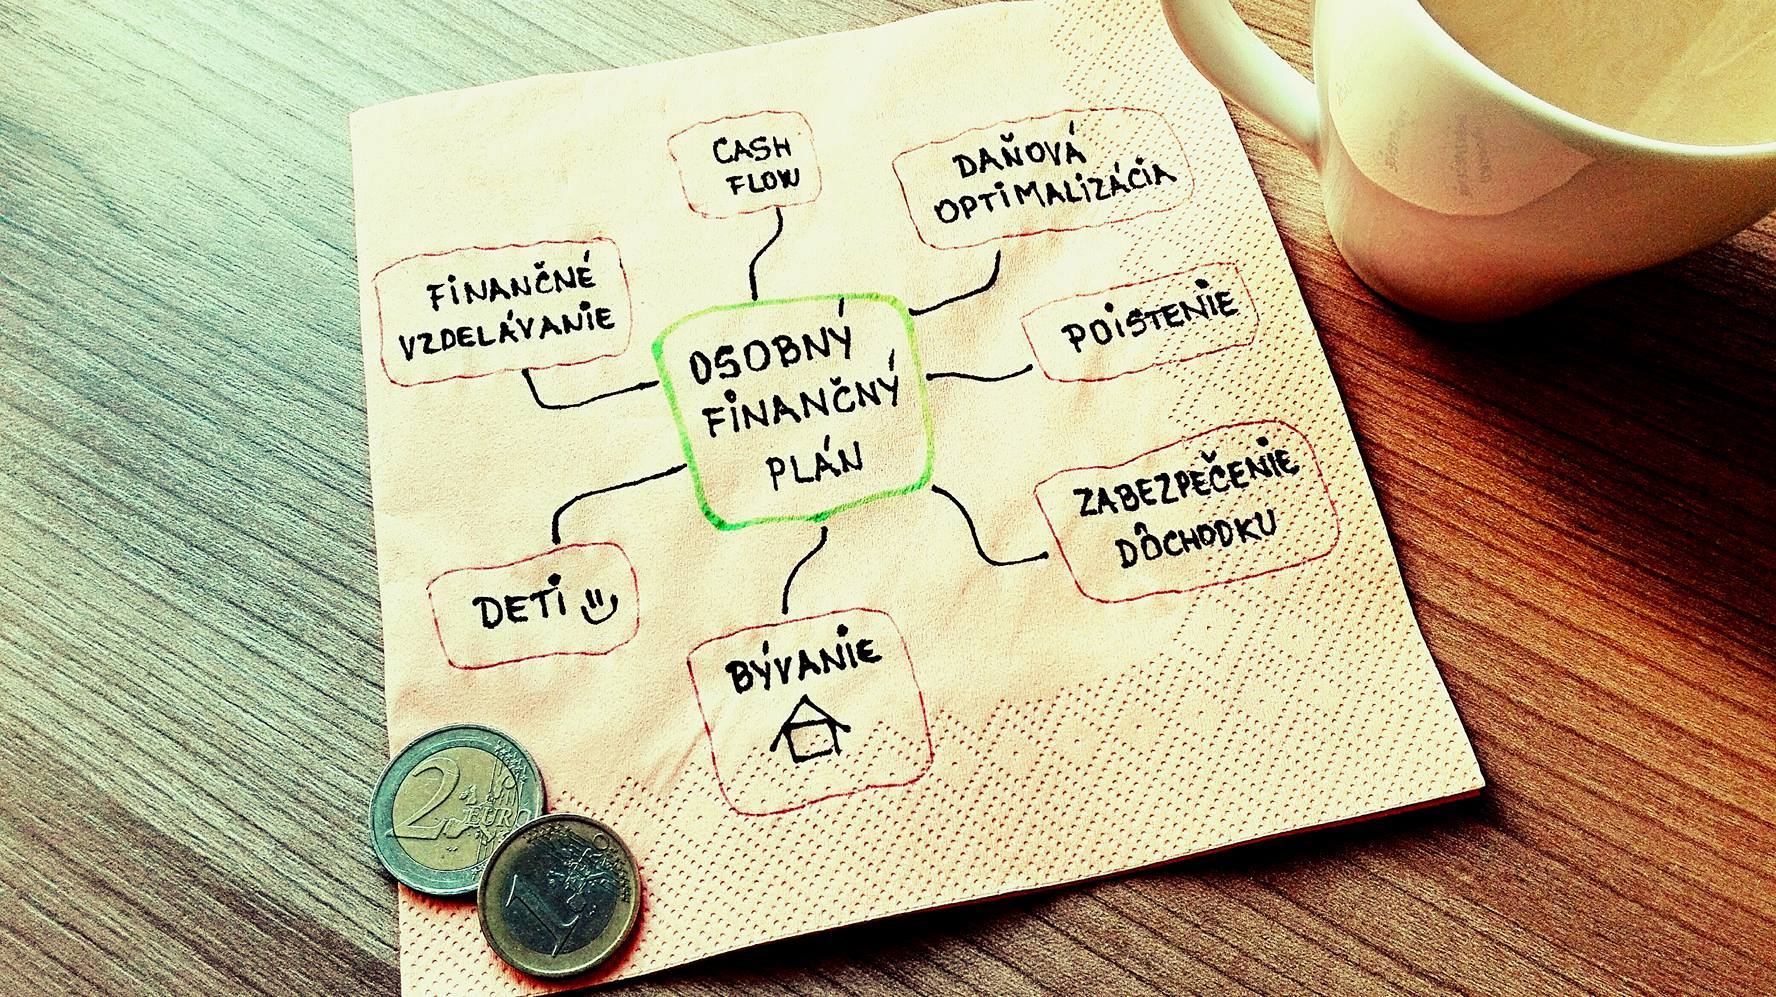 CASH
FLOW
DAŇOVÁ
OPTIMALIZÁCIA
FINANČNÉ
VZDELÁVANIE
POISTENIE
OSOBNÝ
FINANČNÝ
PLÁN
ZABEZPEČENIE
DÔCHODKU
DETI
BÝVANIE
2 EURO
1